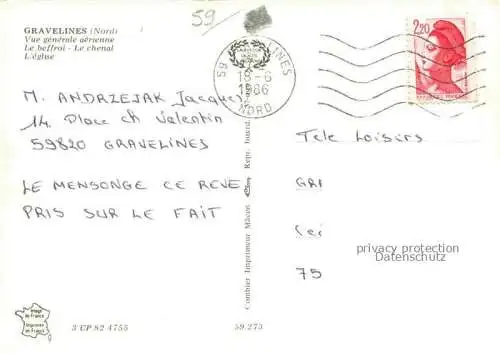 59
GRAVELINES (Nord)
Vue générale aérienne
Le beffroi - Le chenal
L'église
59 GRAVELINES
18-6
1986
NORD
2,20
M. ANDRZEJAK Jacques
14 Place ch Valentin
59820 GRAVELINES
LE MENSONGE CE REVE
PRIS SUR LE FAIT
Tele Loisirs
GRI
Cei
75
privacy protection
Datenschutz
Combier Imprimeur Mâcon
Repr. Interd.
image de France
imprimée en France
3 CP 82 4755
59.273